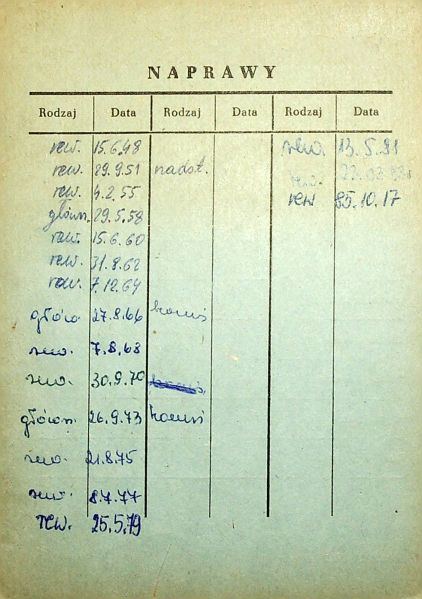 NAPRAWY
Rodzaj Data Rodzaj Data Rodzaj Data
rew. 15.6.48 rew. 13.5.81
rew. 29.9.51 nadst. rew. 22.03.83
rew. 4.2.55 rew 85.10.17
główn. 29.5.58
rew. 15.6.60
rew. 31.8.62
rew. 7.12.64
główn. 27.8.66
rew. 7.8.68
rew. 30.9.70
główn. 26.9.73
rew. 21.8.75
rew. 8.7.77
rew. 25.5.79